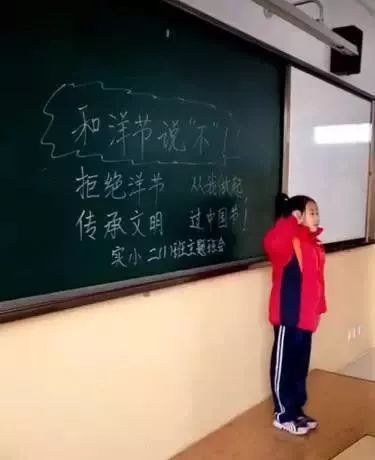 和洋节说“不”！
拒绝洋节 从我做起
传承文明 过中国节！
实小二(1)班主题班会